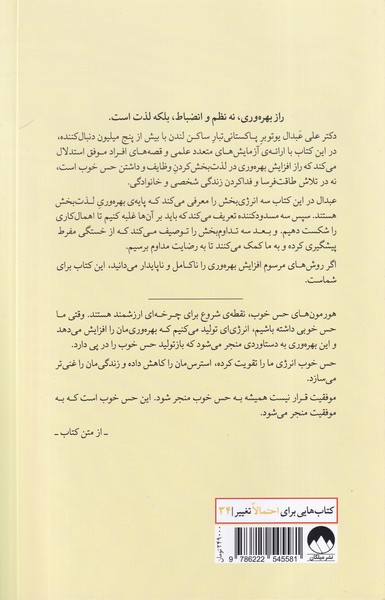 راز بهره‌وری، نه نظم و انضباط، بلکه لذت است.
دکتر علی عَبدال یوتوبر پاکستانی‌تبارِ ساکن لندن با بیش از پنج میلیون دنبال‌کننده،
در این کتاب با ارائه‌ی آزمایش‌های متعدد علمی و قصه‌های افراد موفق استدلال
می‌کند که راز افزایش بهره‌وری در لذت‌بخش‌کردنِ وظایف و داشتن حس خوب است،
نه در تلاش طاقت‌فرسا و فداکردن زندگی شخصی و خانوادگی.
عبدال در این کتاب سه انرژی‌بخش را معرفی می‌کند که پایه‌ی بهره‌وریِ لذت‌بخش
هستند. سپس سه مسدودکننده تعریف می‌کند که باید بر آن‌ها غلبه کنیم تا اهمال‌کاری
را شکست دهیم. و بعد سه تداوم‌بخش را توصیف می‌کند که از خستگی مفرط
پیشگیری کرده و به ما کمک می‌کنند تا به رضایت مداوم برسیم.
اگر روش‌های مرسوم افزایش بهره‌وری را ناکامل و ناپایدار می‌دانید، این کتاب برای
شماست.
هورمون‌های حس خوب، نقطه‌ی شروع برای چرخه‌ای ارزشمند هستند. وقتی ما
حس خوبی داشته باشیم، انرژی‌ای تولید می‌کنیم که بهره‌وری‌مان را افزایش می‌دهد
و این بهره‌وری به دستاوردی منجر می‌شود که بازتولید حس خوب را در پی دارد.
حس خوب انرژی ما را تقویت کرده، استرس‌مان را کاهش داده و زندگی‌مان را غنی‌تر
می‌سازد.
موفقیت قرار نیست همیشه به حس خوب منجر شود. این حس خوب است که به
موفقیت منجر می‌شود.
ـ از متن کتاب ـ
کتاب‌هایی برای احتمالاً تغییر | ۳۴
۲۴۹۰۰۰ تومان
9 786222 545581
نشر میلکان